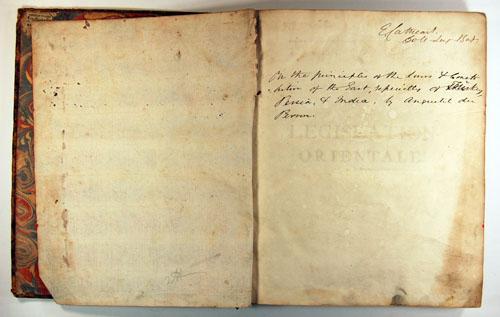 On the principles of the laws & Const-
itution of the East, especially of Turkey,
Persia, & India, by Anquetil du
Perron.
LEGISLATION
ORIENTALE